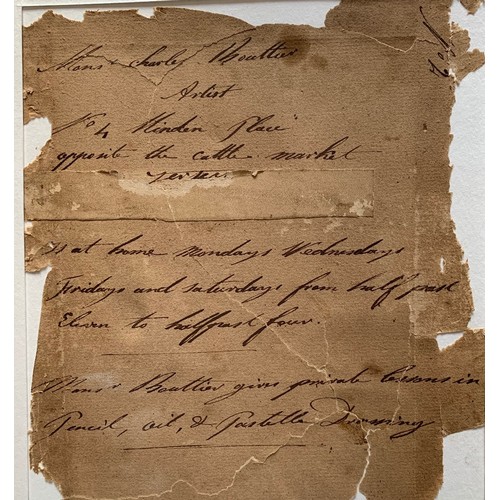 Mons r Charles Bouttier
Artist
No 4 Minden Place
opposite the cattle market
Jersey
Is at home Mondays Wednesdays
Fridays and Saturdays from half past
Eleven to halfpast four.
Mons r Bouttier gives private lessons in
Pencil, oil, & Pastelle Drawing